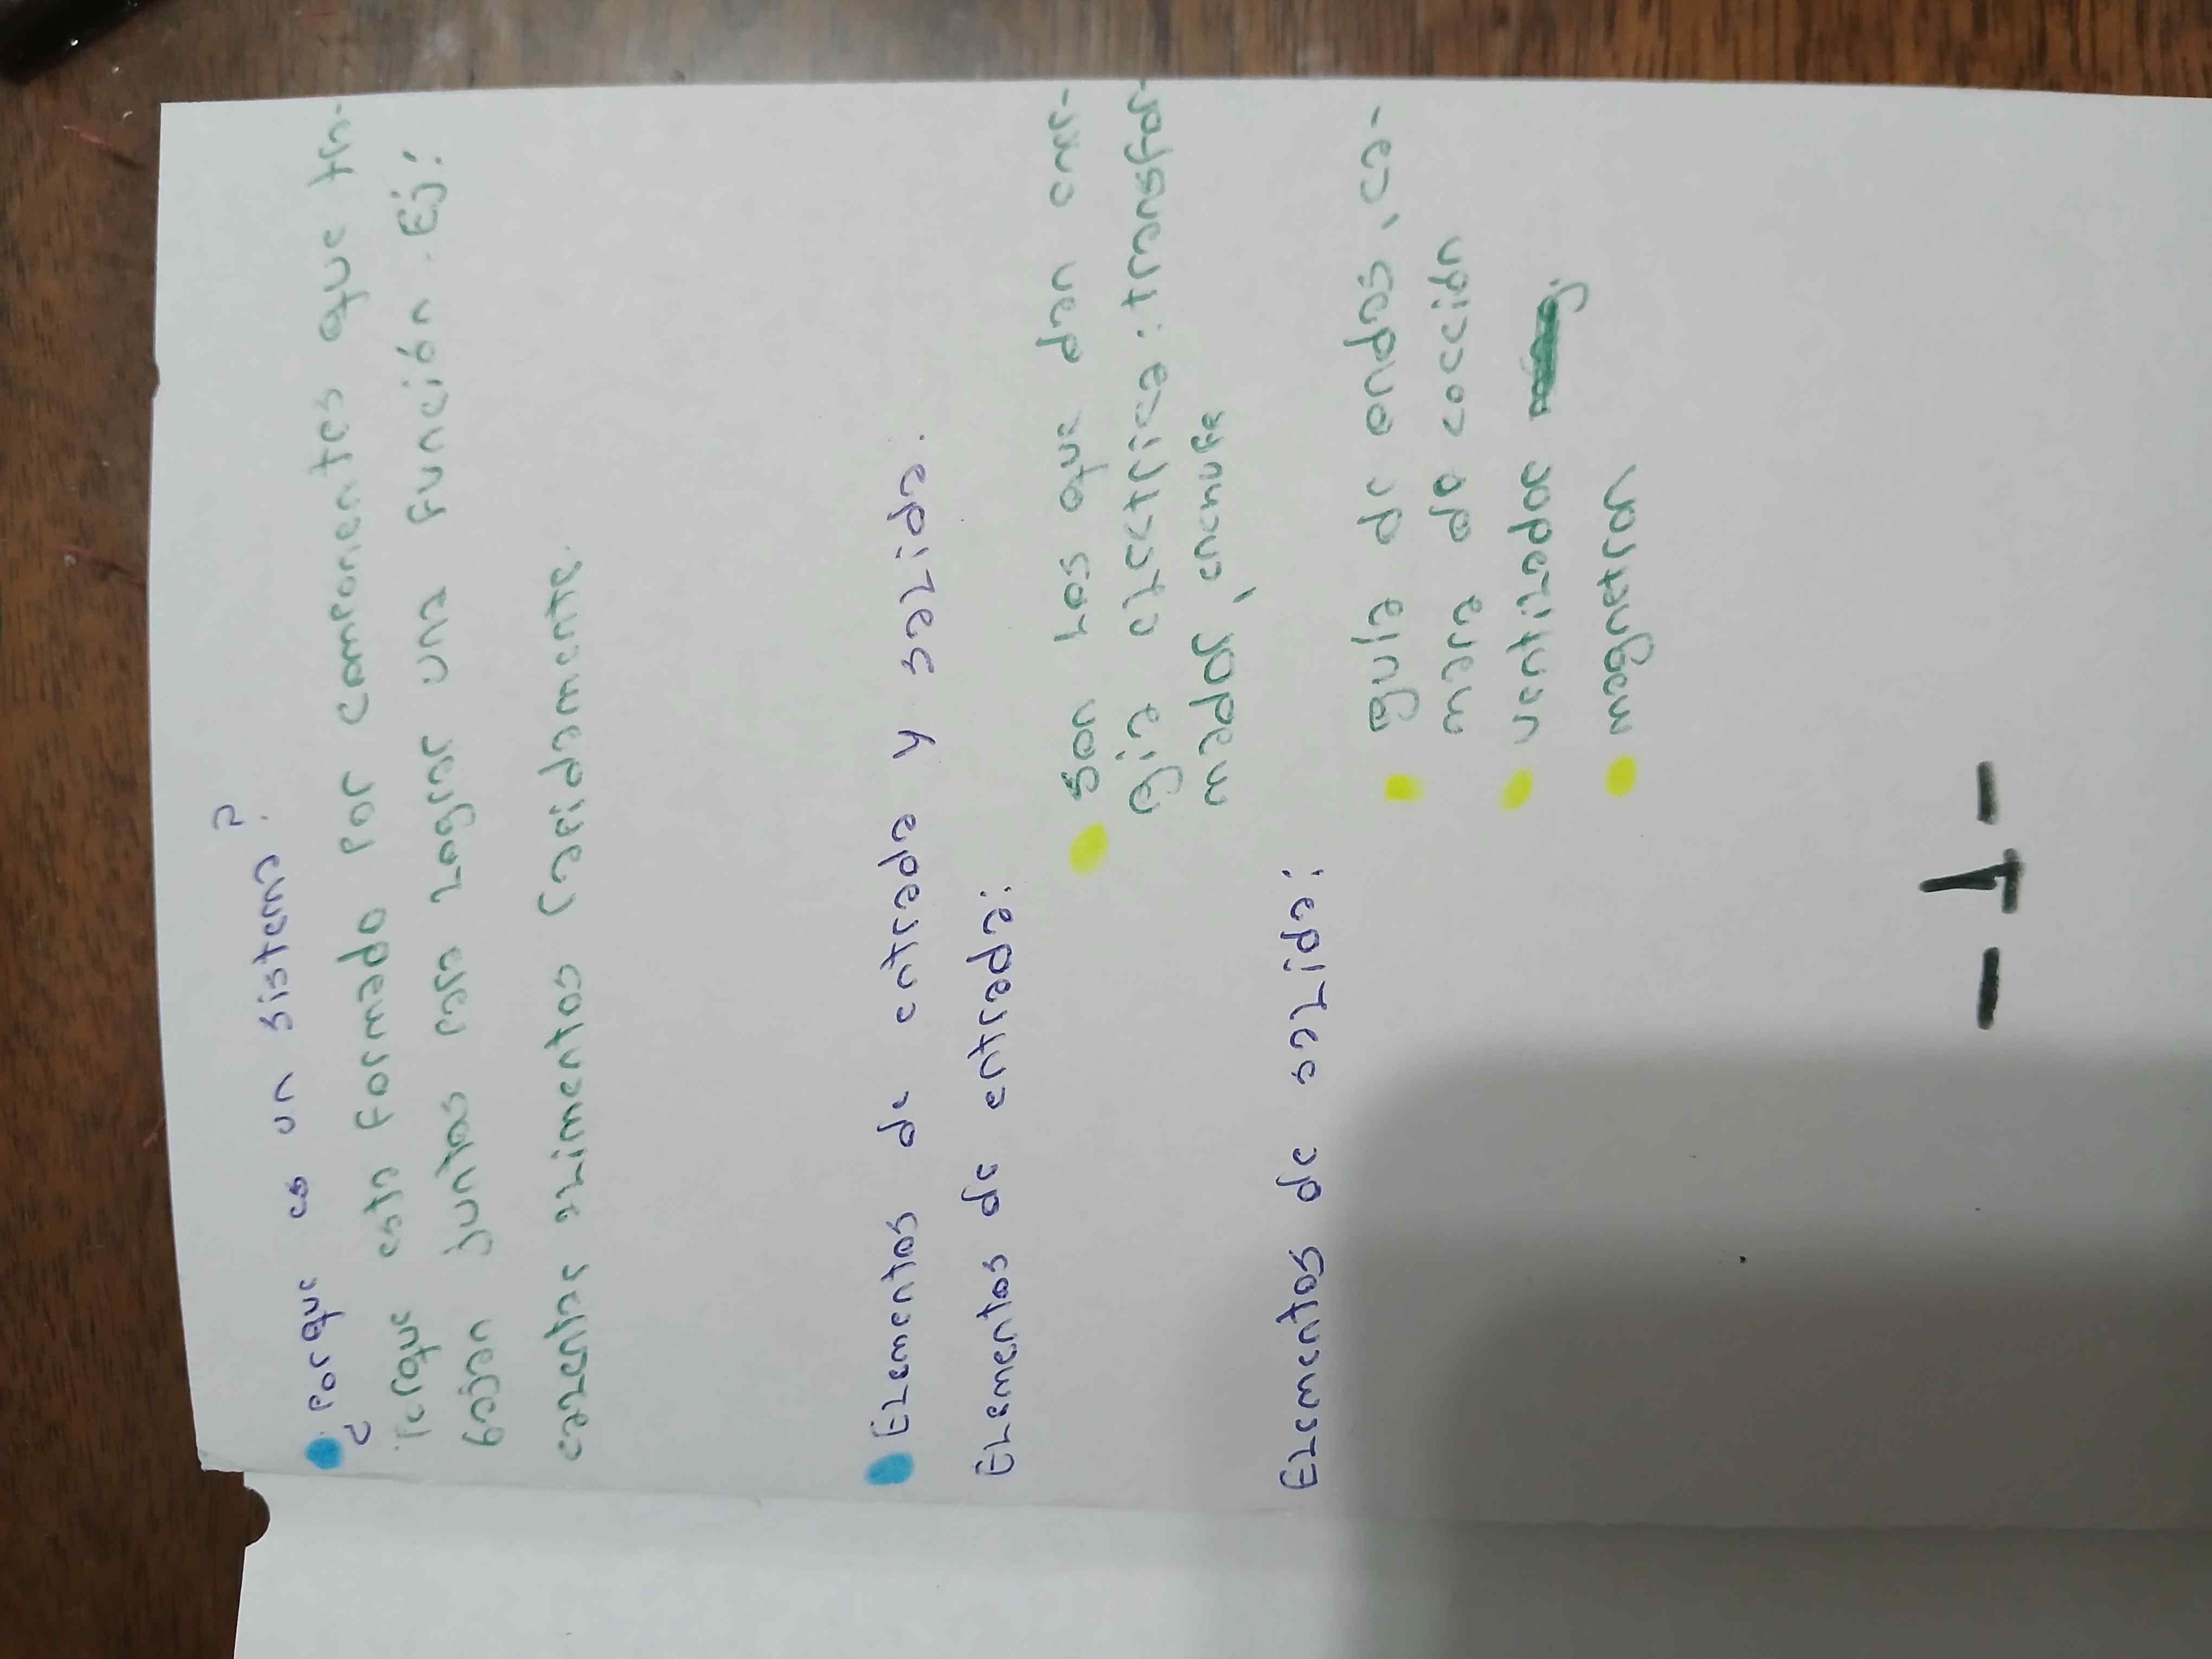 ¿porque es un sistema?
porque esta formado por componentes que tr-
bajan juntos para lograr una función. Ej:
calentar alimentos rapidamente.
Elementos de entrada y salida.
Elementos de entrada:
son los que dan ene-
gia electrica: transfor-
mador, enchufe
Elementos de salida:
guia de ondas, ca-
mara de cocción
ventilador
magnetron
- 1 -